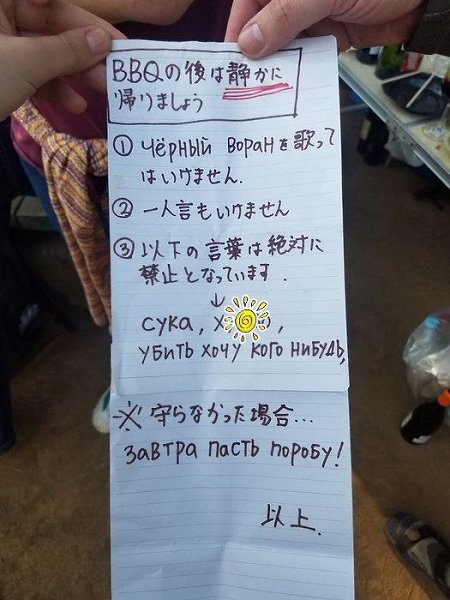 BBQの後は静かに
帰りましょう
① Чёрный воранを歌って
はいけません.
② 一人言もいけません
③ 以下の言葉は絶対に
禁止となっています.
↓
сука,
убить хочу кого нибудь,
※ 守らなかった場合...
завтра пасть поробу!
以上.